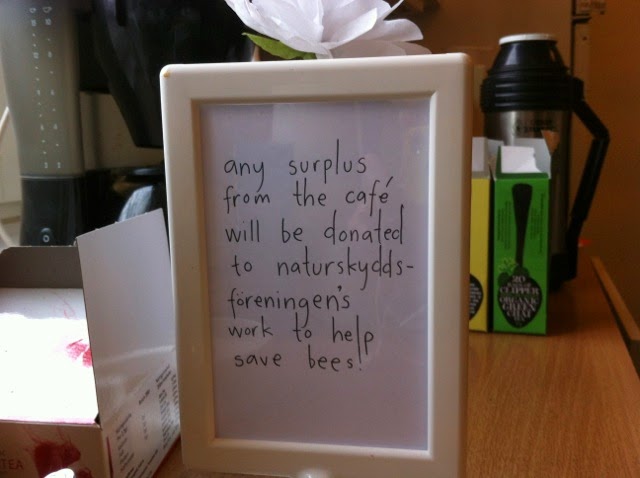 any surplus
from the café
will be donated
to naturskydds-
föreningen's
work to help
save bees!
CLIPPER
ORGANIC
GREEN
TEA